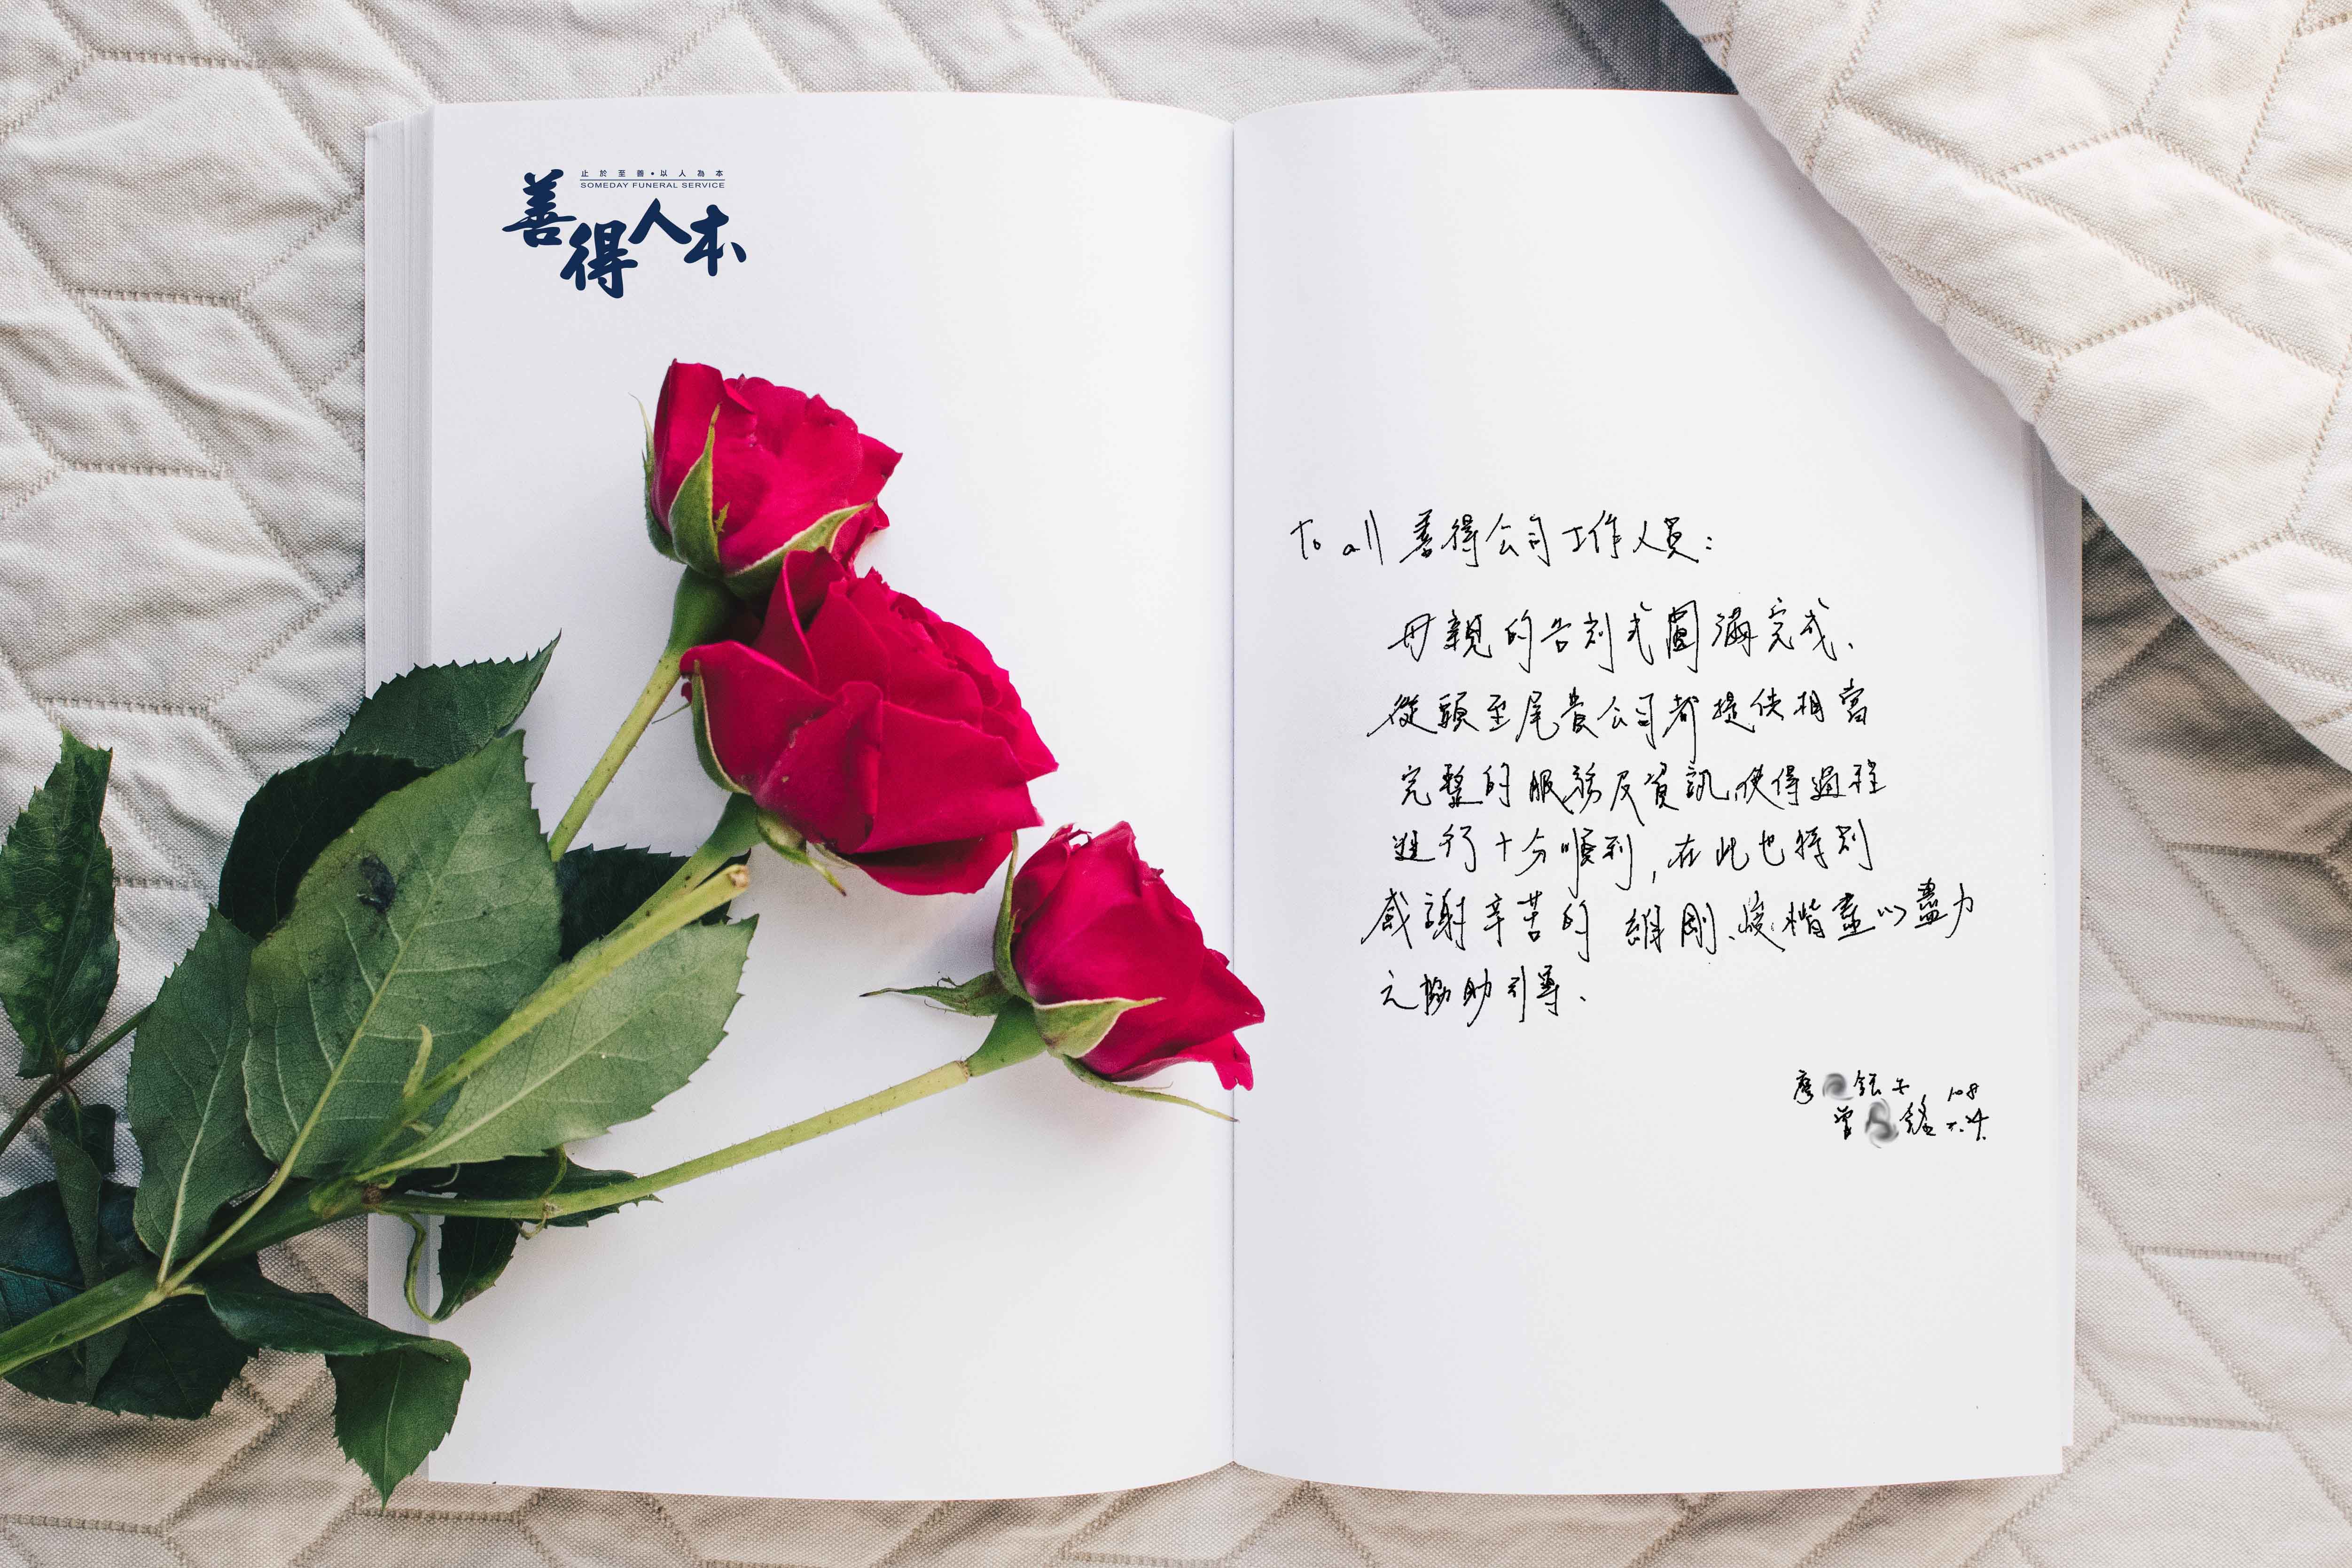 止於至善•以人為本
SOMEDAY FUNERAL SERVICE
善得人本
To all 善得公司工作人員：
母親的告別式圓滿完成、
從頭至尾貴公司都提供相當
完整的服務及資訊，使得過程
進行十分順利，在此也特別
感謝辛苦的 維剛、峻楷盡心盡力
之協助引導、
廖 鈺 108
曾 銘